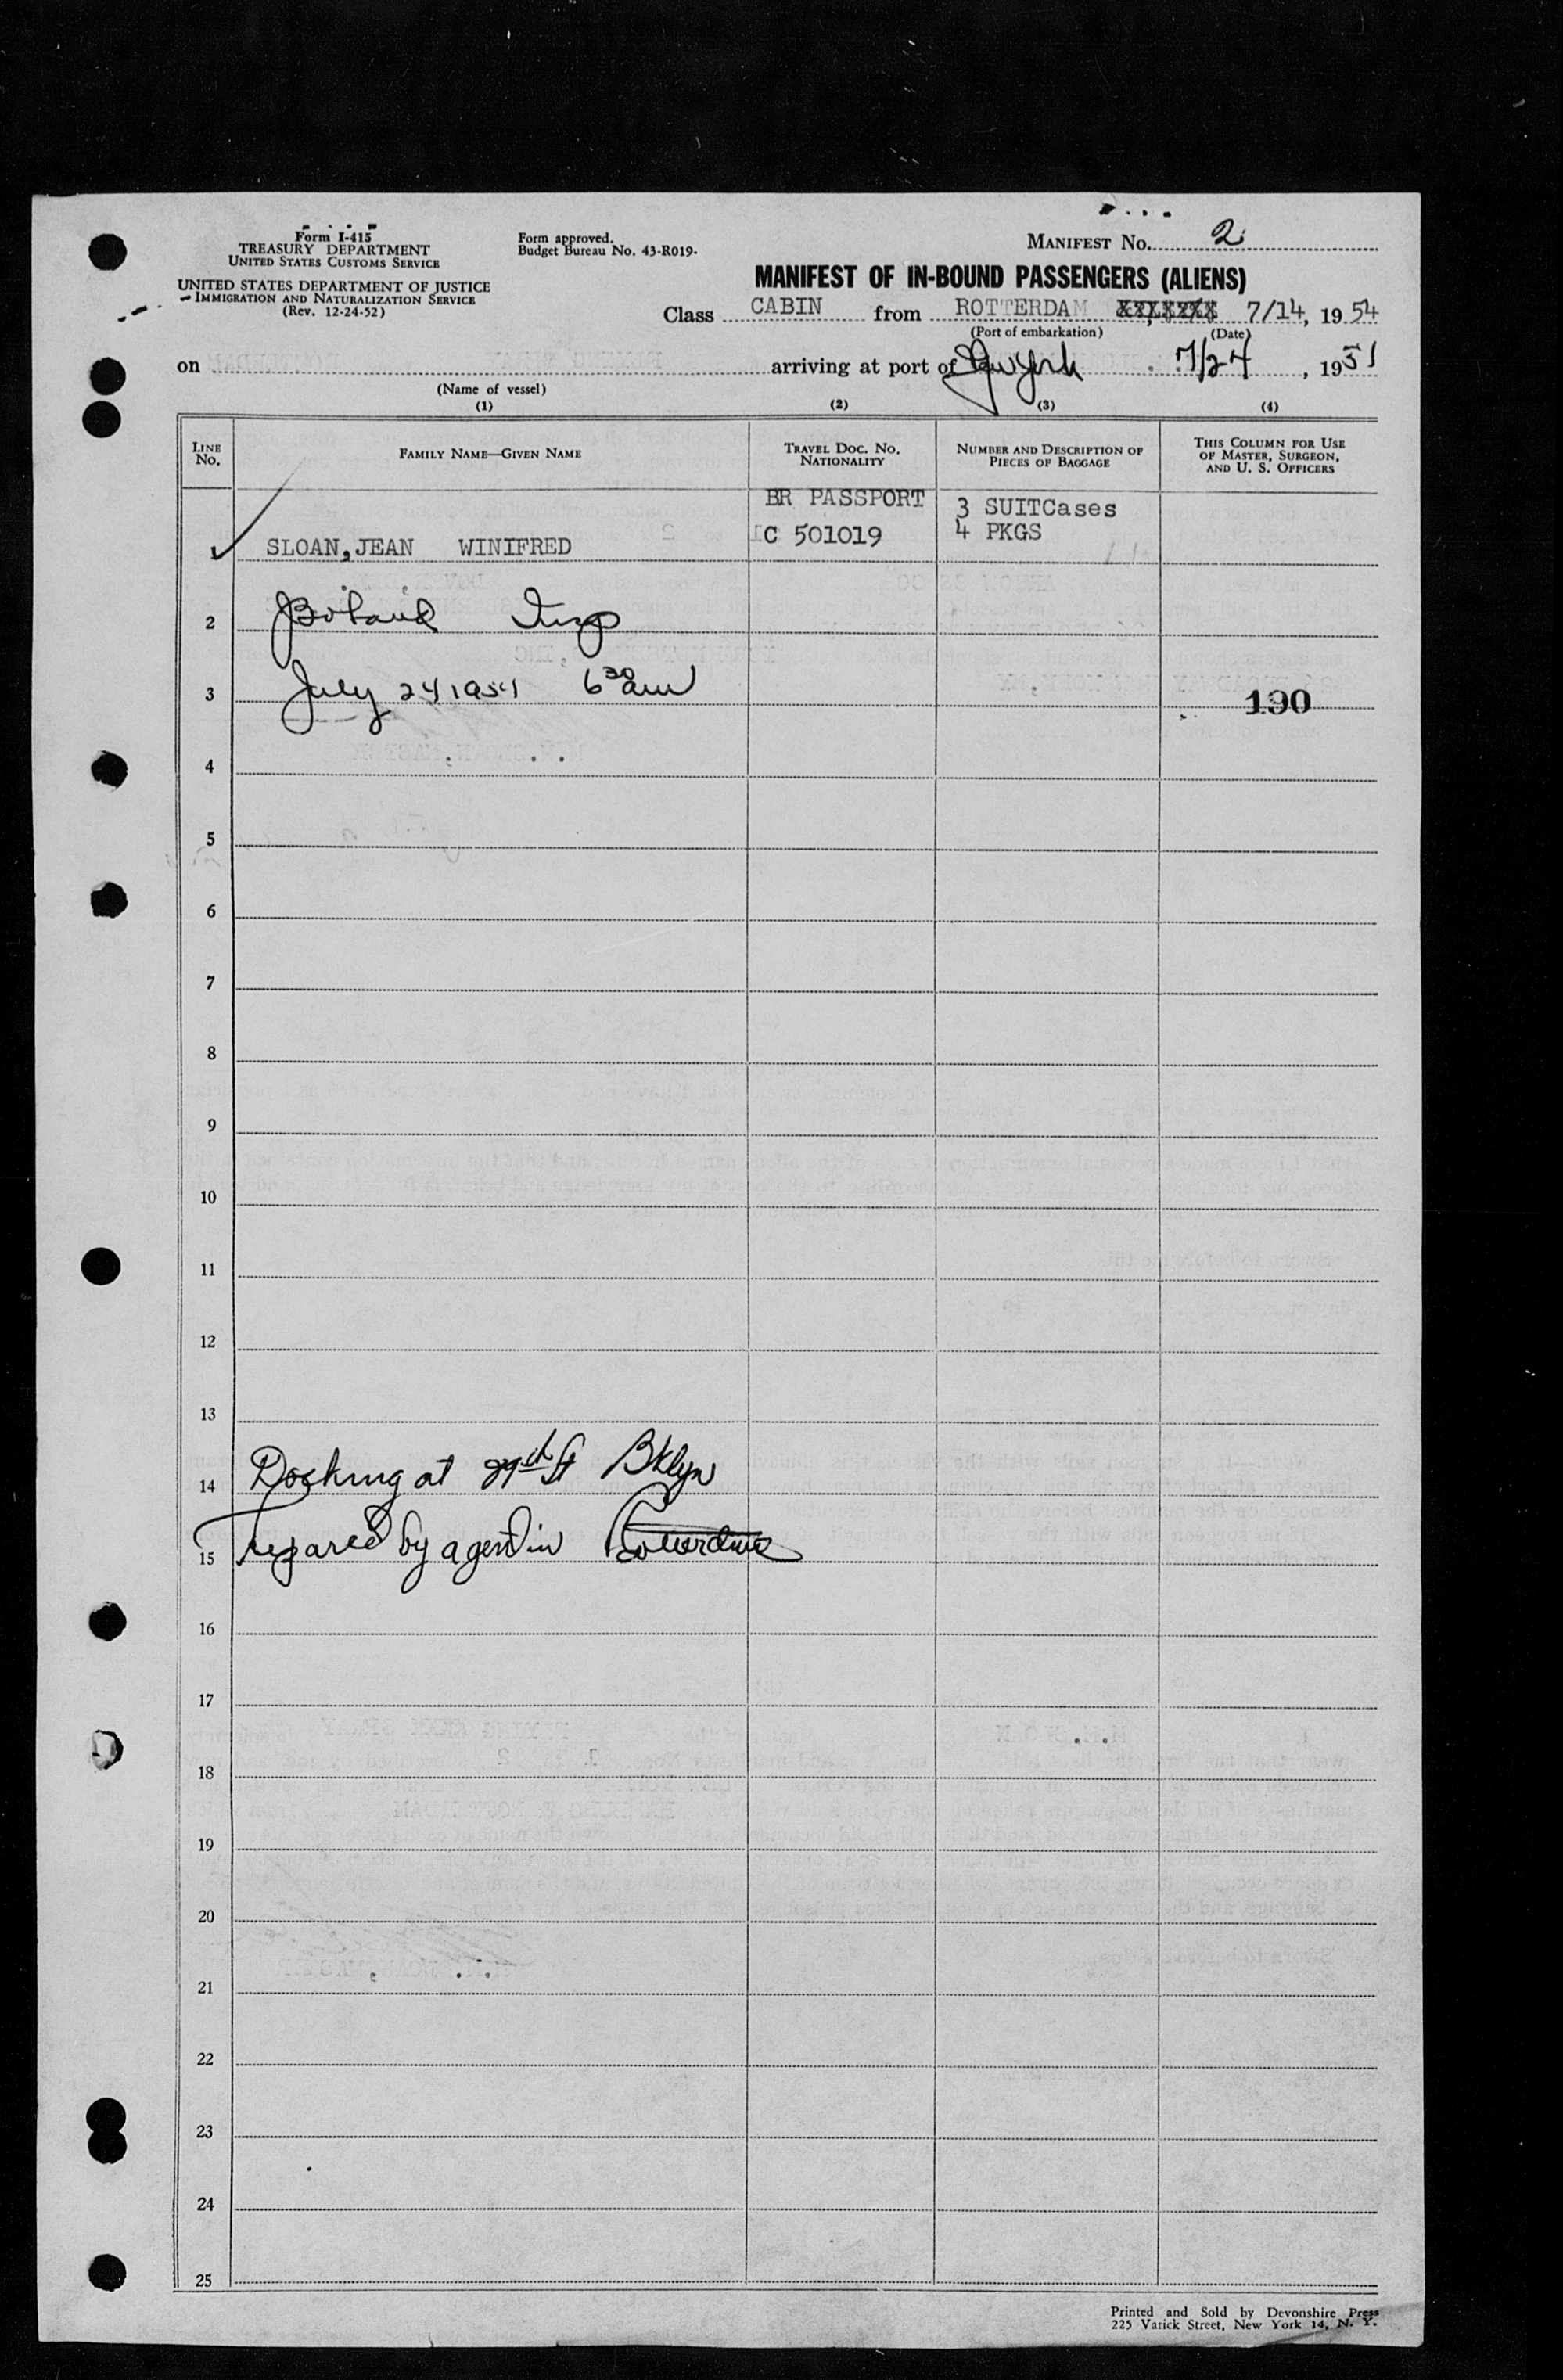 Form I-415
TREASURY DEPARTMENT
UNITED STATES CUSTOMS SERVICE
UNITED STATES DEPARTMENT OF JUSTICE
IMMIGRATION AND NATURALIZATION SERVICE
(Rev. 12-24-52)
Form approved.
Budget Bureau No. 43-R019-
MANIFEST No. 2
MANIFEST OF IN-BOUND PASSENGERS (ALIENS)
Class CABIN from ROTTERDAM 7/14, 1954
(Port of embarkation) (Date)
on arriving at port of New York 7/24, 1954
(Name of vessel)
(1) (2) (3) (4)
LINE No. FAMILY NAME—GIVEN NAME TRAVEL DOC. No. NATIONALITY NUMBER AND DESCRIPTION OF PIECES OF BAGGAGE THIS COLUMN FOR USE OF MASTER, SURGEON, AND U. S. OFFICERS
BR PASSPORT 3 SUITCases
1 SLOAN, JEAN WINIFRED C 501019 4 PKGS
2 Insp
3 July 24 1954 6 30 am 190
4
5
6
7
8
9
10
11
12
13
14 Docking at 29th St Bklyn
15 Prepared by agent in
16
17
18
19
20
21
22
23
24
25
Printed and Sold by Devonshire Press
225 Varick Street, New York 14, N. Y.